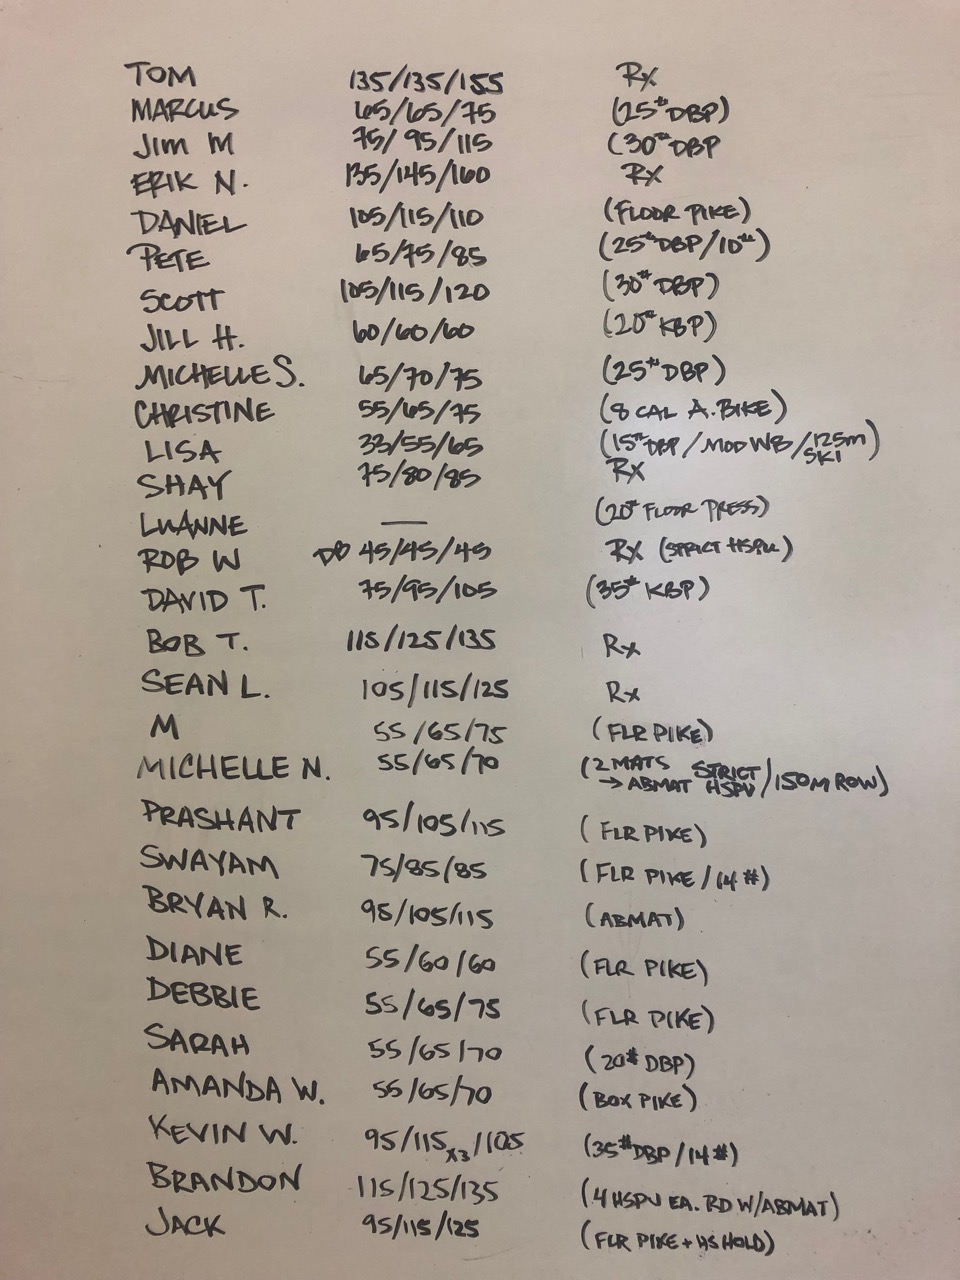 TOM 135/135/155 Rx
MARCUS 65/65/75 (25# DBP)
JIM M 75/95/115 (30# DBP
ERIK N. 135/145/160 Rx
DANIEL 105/115/110 (FLOOR PIKE)
PETE 65/75/85 (25# DBP/10#)
SCOTT 105/115/120 (30# DBP)
JILL H. 60/60/60 (20# KBP)
MICHELLE S. 65/70/75 (25# DBP)
CHRISTINE 55/65/75 (8 CAL A. BIKE)
LISA 33/55/65 (15# DBP/MOD WB/125m SKI)
SHAY 75/80/85 Rx
LUANNE — (20# FLOOR PRESS)
ROB W DB 45/45/45 Rx (STRICT HSPU)
DAVID T. 75/95/105 (35# KBP)
BOB T. 115/125/135 Rx
SEAN L. 105/115/125 Rx
M 55/65/75 (FLR PIKE)
MICHELLE N. 55/65/70 (2 MATS → ABMAT STRICT HSPU/150M ROW)
PRASHANT 95/105/115 (FLR PIKE)
SWAYAM 75/85/85 (FLR PIKE/14#)
BRYAN R. 95/105/115 (ABMAT)
DIANE 55/60/60 (FLR PIKE)
DEBBIE 55/65/75 (FLR PIKE)
SARAH 55/65/70 (20# DBP)
AMANDA W. 55/65/70 (BOX PIKE)
KEVIN W. 95/115x3/105 (35# DBP/14#)
BRANDON 115/125/135 (4 HSPU EA. RD W/ABMAT)
JACK 95/115/125 (FLR PIKE + HS HOLD)